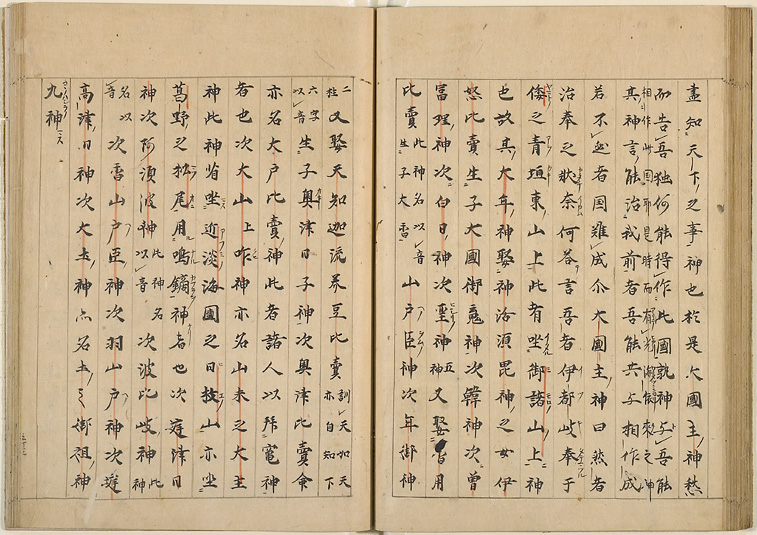 盡知天下之事神也於是大國主神愁
而告吾独何能得作此國孰神与吾能
相作此国耶是時有光海依来之神
其神言能治我前者吾能共与相作成
若不然者国難成尒大國主神曰然者
治奉之状奈何答言吾者伊都岐奉于
倭之青垣東山上此者坐御諸山上神
也故其大年神娶神活須毘神之女伊
怒比賣生子大國御魂神次韓神次曽
冨理神次白日神次聖神五神又娶香用
比賣此神名以音生子大香山戸臣神次年御神
二柱又娶天知迦流美豆比賣訓天如天亦自知下
六字以音生子奥津日子神次奥津比賣命
亦名大戸比賣神此者諸人以拜竈神
者也次大山上咋神亦名山末之大主
神此神者坐近淡海國之日枝山亦坐
葛野之松尾用鳴鏑神者也次庭津日
神次阿須波神此神名以音次波比岐神此神
名以音次香山戸臣神次羽山戸神次庭
高津日神次大土神亦名土之御祖神
九神